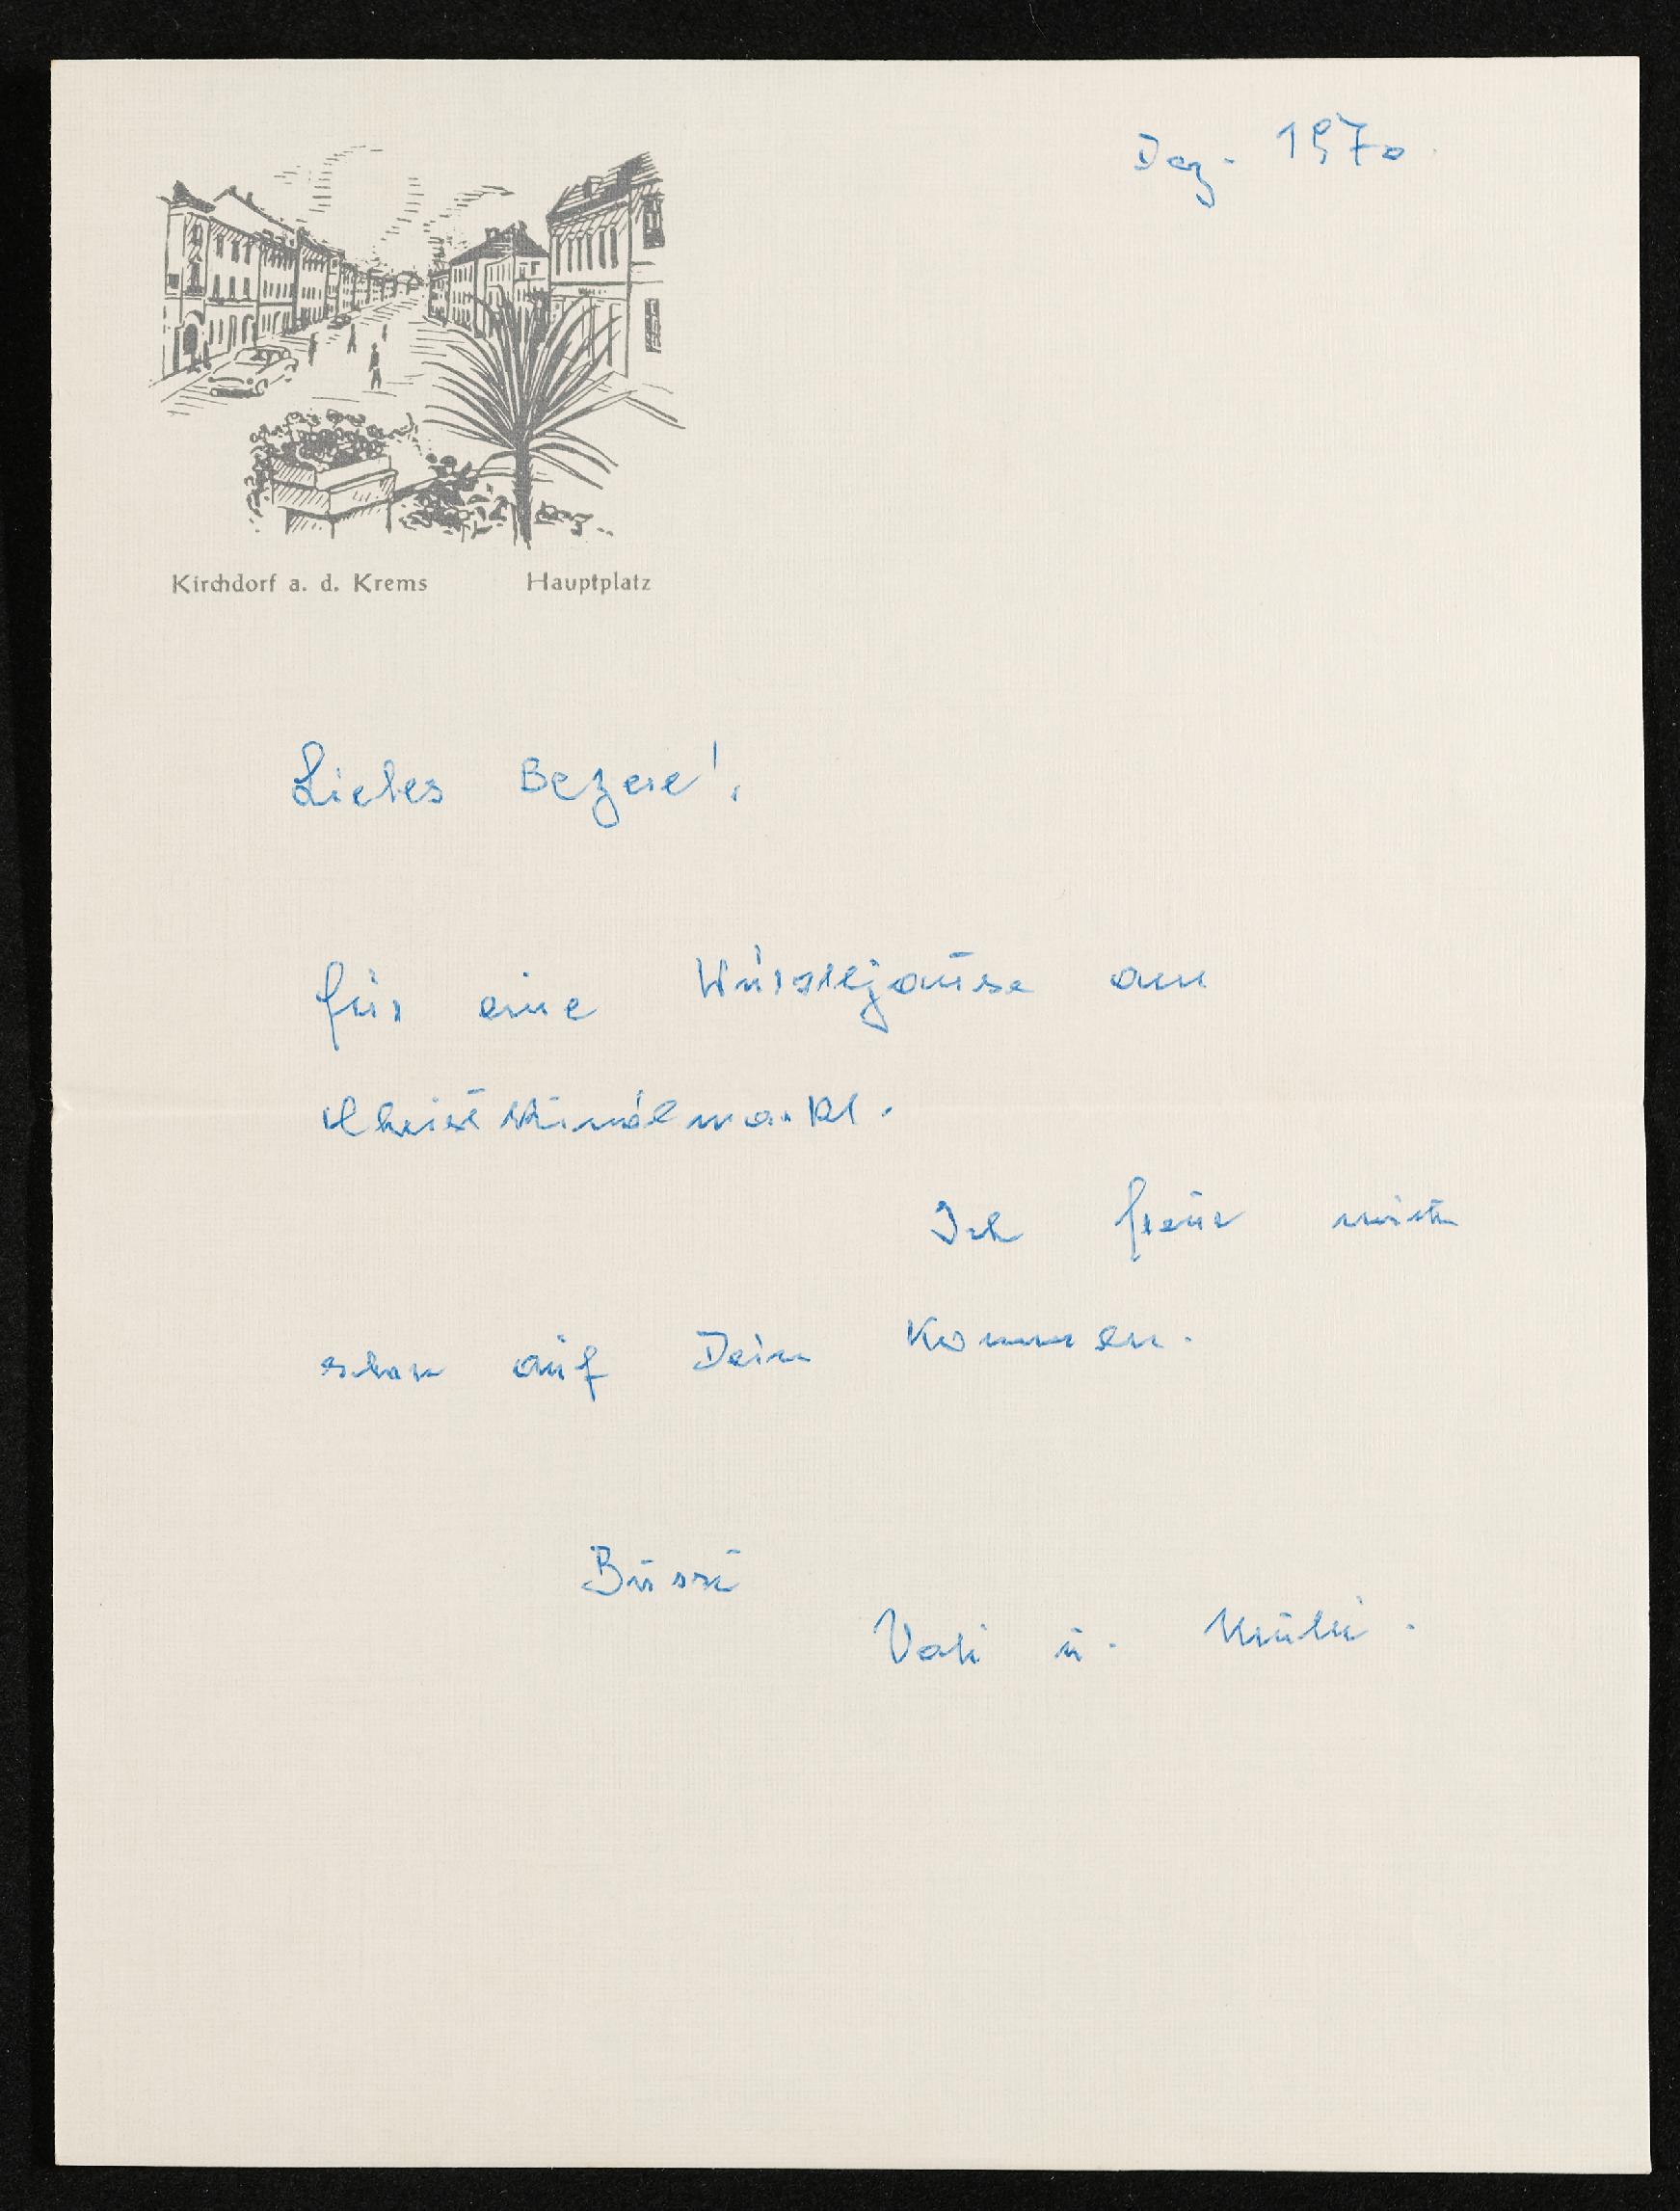 Dez. 1970.
Kirchdorf a. d. Krems Hauptplatz
Liebes
für eine Würstljause am
Christkindlmarkt.
Ich freue mich
schon auf Dein Kommen.
Bussi
Vati u. Mutti.